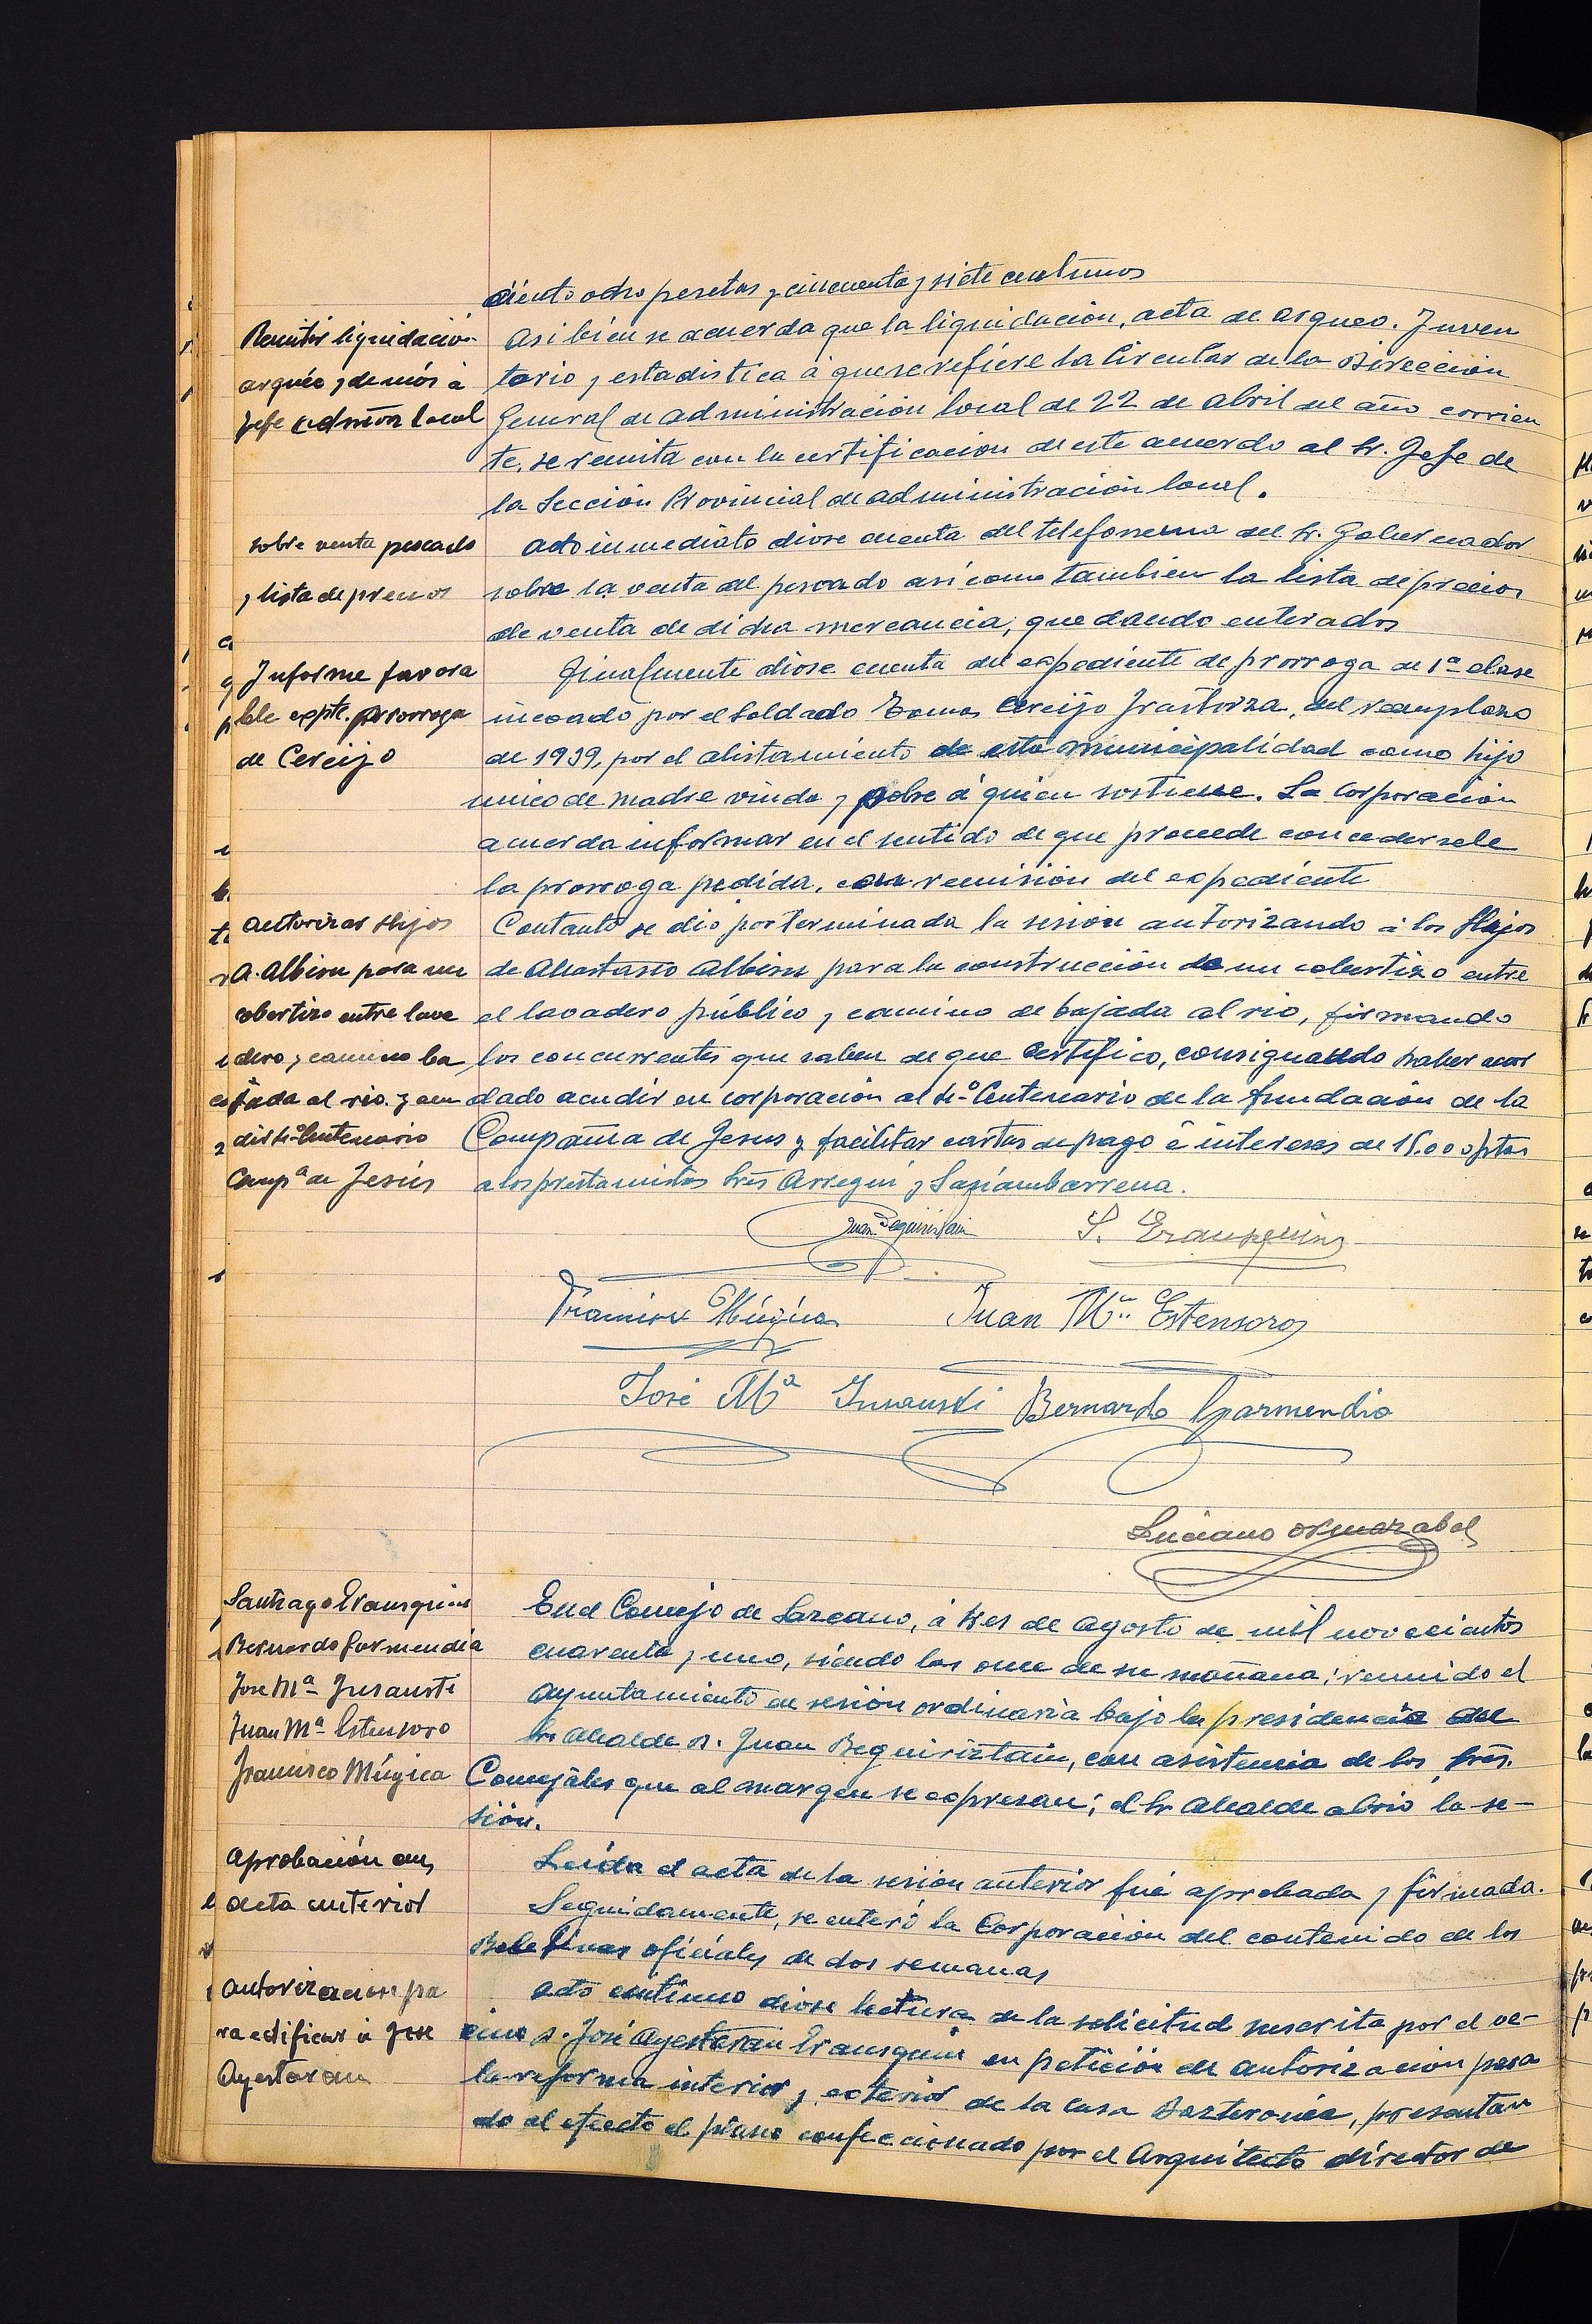 ciento ocho pesetas y cincuenta y siete centimos
Remitir liquidación
arquéo y demás á
Jefe admón local
Asi bien se acuerda que la liquidacion, acta de arqueo. Inven
tario y estadistica á que se refiere la Circular de la Direccion
General de administración local de 22 de abril del año corrien
te, se remita con la certificacion de este acuerdo al Sr. Jefe de
la Sección Provincial de administración local.
sobre venta pescado
y lista de precios
acto inmediato diose cuenta del telefonema del Sr. Gobernador
sobre la venta del pescado asi como tambien la lista de precios
de venta de dicha mercancia, quedando enterados
Informe favora
ble expte. prorroga
de Cereijo
Finalmente diose cuenta del expediente de prorroga de 1ª clase
incoado por el soldado Tomas Cereijo Irastorza, del reemplazo
de 1939, por el alistamiento de esta municipalidad como hijo
unico de madre viuda y pobre á quien sostiene. La Corporacion
acuerda informar en el sentido de que procede concedersele
la prorroga pedida, con remisión del expediente
autorizar Hijos
A. Albisu para un
cobertizo entre lava
dero y camino ba
jada al rio. y acu
dir 4º Centenario
Compª de Jesús
Contanto se dio por terminada la sesión autorizando á los Hijos
de Anastasio Albisu para la construcción de un cobertizo entre
el lavadero público y camino de bajada al rio, firmando
los concurrentes que saben de que certifico, consignando haber acor
dado acudir en corporación al 4º Centenario de la fundación de la
Compañia de Jesus y facilitar cartas de pago é intereses de 15.000 ptas
a los prestamistas Srés Arregui y Saziambarrena.
Juan Beguiristain
S. Erausquin
Francisco Múgica
Juan Mª Estensoro
José Mª Insausti Bernardo Garmendia
Luciano Ormazabal
Santiago Erausquin
Bernardo Garmendia
Jose Mª Insausti
Juan Mª Estensoro
Francisco Múgica
En el Concejo de Lazcano, á tres de agosto de mil novecientos
cuarenta y uno, siendo las once de su mañana; reunido el
Ayuntamiento en sesión ordinaria bajo la presidencia del
Sr. Alcalde D. Juan Beguiriztain, con asistencia de los Srés.
Concejáles que al margen se expresan; el Sr Alcalde abrió la se-
sión.
Aprobación
acta anterior
Leida el acta de la sesión anterior fué aprobada y firmada.
Seguidamente, se enteró la Corporación del contenido de los
Boletines oficiales de dos semanas
autorizacion pa
ra edificar á Jose
Ayestaran
Acto continuo diose lectura de la solicitud suscrita por el ve-
cino D. José Ayestaran Erausquin en petición de autorizacion para
la reforma interior y exterior de la casa, presentan
do al efecto el plano confeccionado por el Arquitecto director de